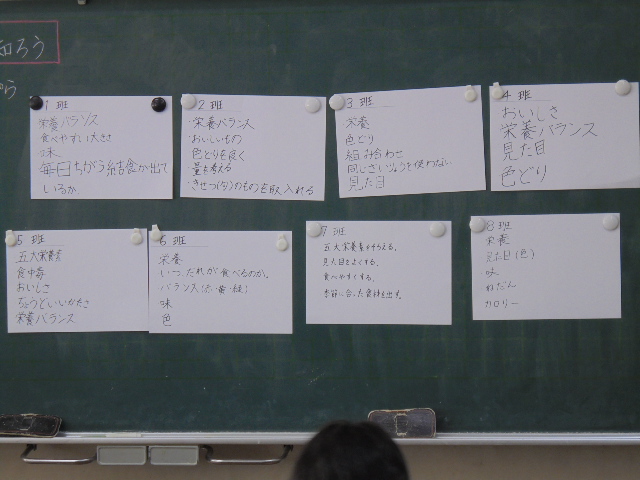 知ろう
から
1 班
栄養バランス
食べやすい大きさ
味
毎日ちがう給食が出て
いるか
2 班
・栄養バランス
・おいしいもの
・色どりを良く
・量も考える
・きせつのものを取入れる
3 班
栄養
色どり
組み合わせ
同じざいりょうを使わない
見た目
4 班
おいしさ
栄養バランス
見た目
色どり
5 班
五大栄養素
食中毒
おいしさ
ちょうどいいかたさ
栄養バランス
6 班
栄養
いつ、だれが食べるのか。
バランス(赤・黄・緑)
味
色
7 班
五大栄養素をそろえる。
見た目をよくする。
食べやすくする。
季節に合った食材を出す。
8 班
栄養
見た目(色)
味
ねだん
カロリー